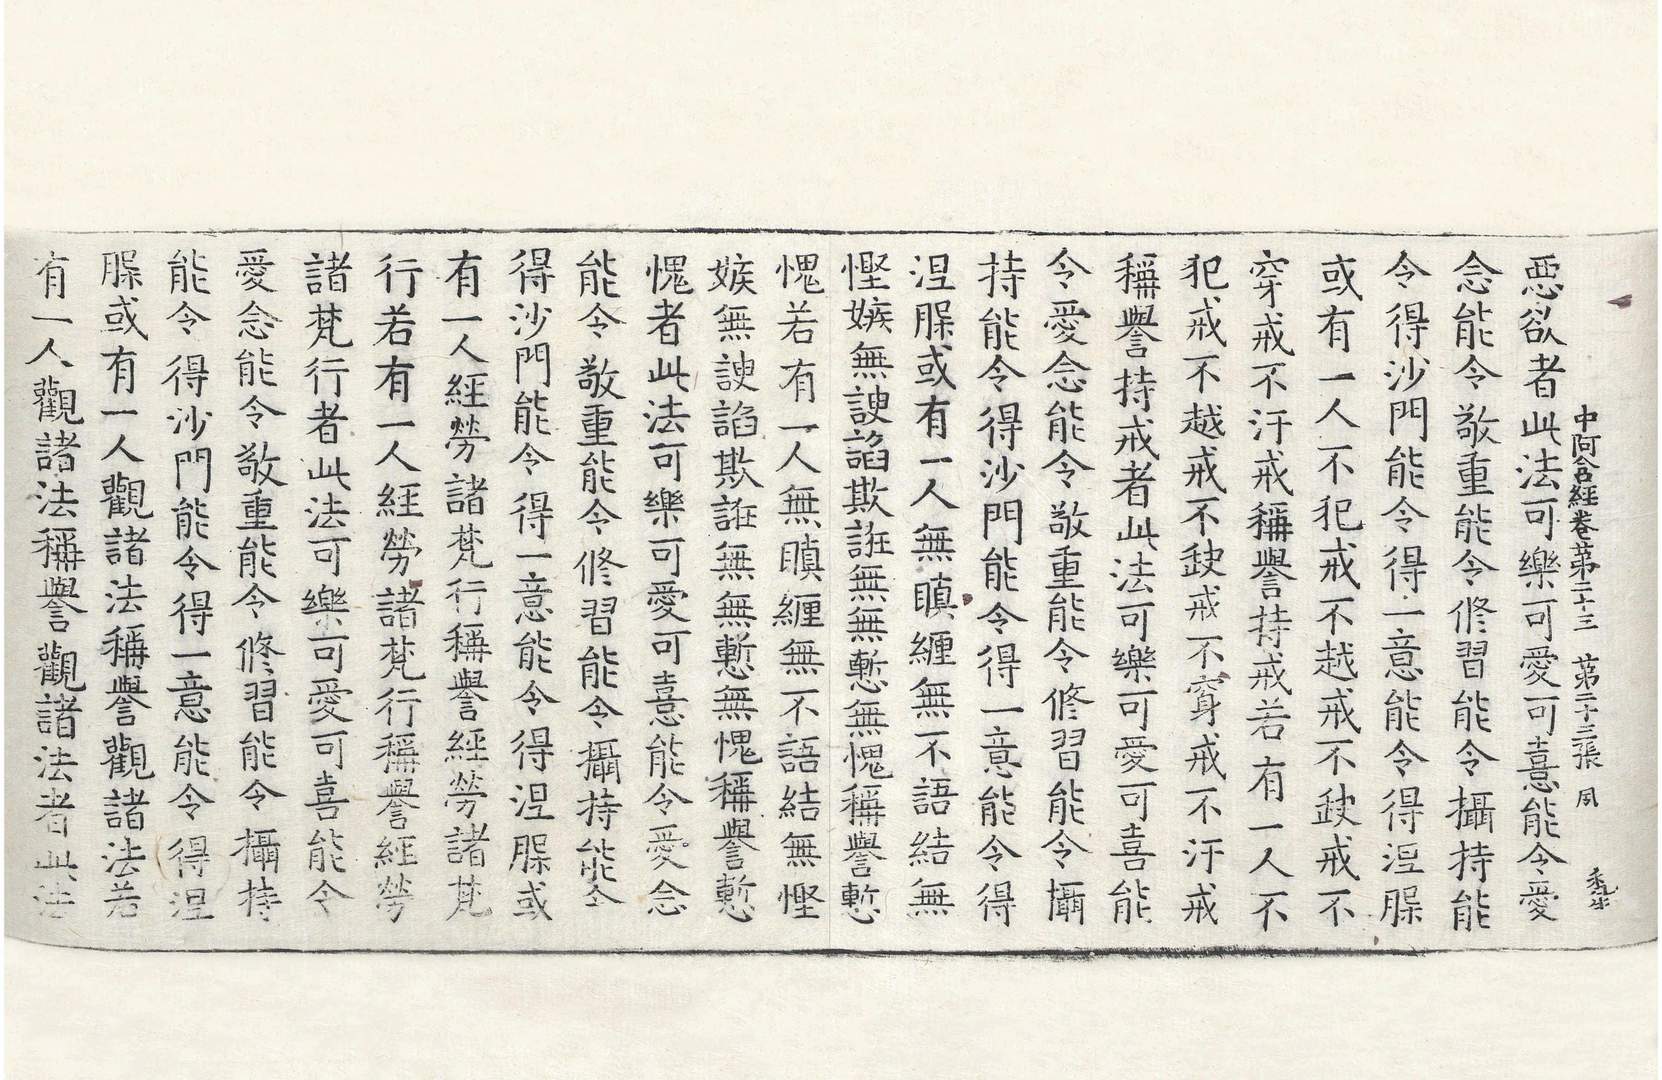 中阿含經卷第二十三　第二十三張　夙
惡欲者此法可樂可愛可憙能令愛
念能令敬重能令修習能令攝持能
令得沙門能令得一意能令得涅槃
或有一人不犯戒不越戒不缺戒不
穿戒不汙戒稱譽持戒若有一人不
犯戒不越戒不缺戒不穿戒不汙戒
稱譽持戒者此法可樂可愛可喜能
令愛念能令敬重能令修習能令攝
持能令得沙門能令得一意能令得
涅槃或有一人無瞋纏無不語結無
慳嫉無諛諂欺誑無無慙無愧稱譽慙
愧若有一人無瞋纏無不語結無慳
嫉無諛諂欺誑無無慙無愧稱譽慙
愧者此法可樂可愛可憙能令愛念
能令敬重能令修習能令攝持能令
得沙門能令得一意能令得涅槃或
有一人經勞諸梵行稱譽經勞諸梵
行若有一人經勞諸梵行稱譽經勞
諸梵行者此法可樂可愛可喜能令
愛念能令敬重能令修習能令攝持
能令得沙門能令得一意能令得涅
槃或有一人觀諸法稱譽觀諸法若
有一人觀諸法稱譽觀諸法者此法